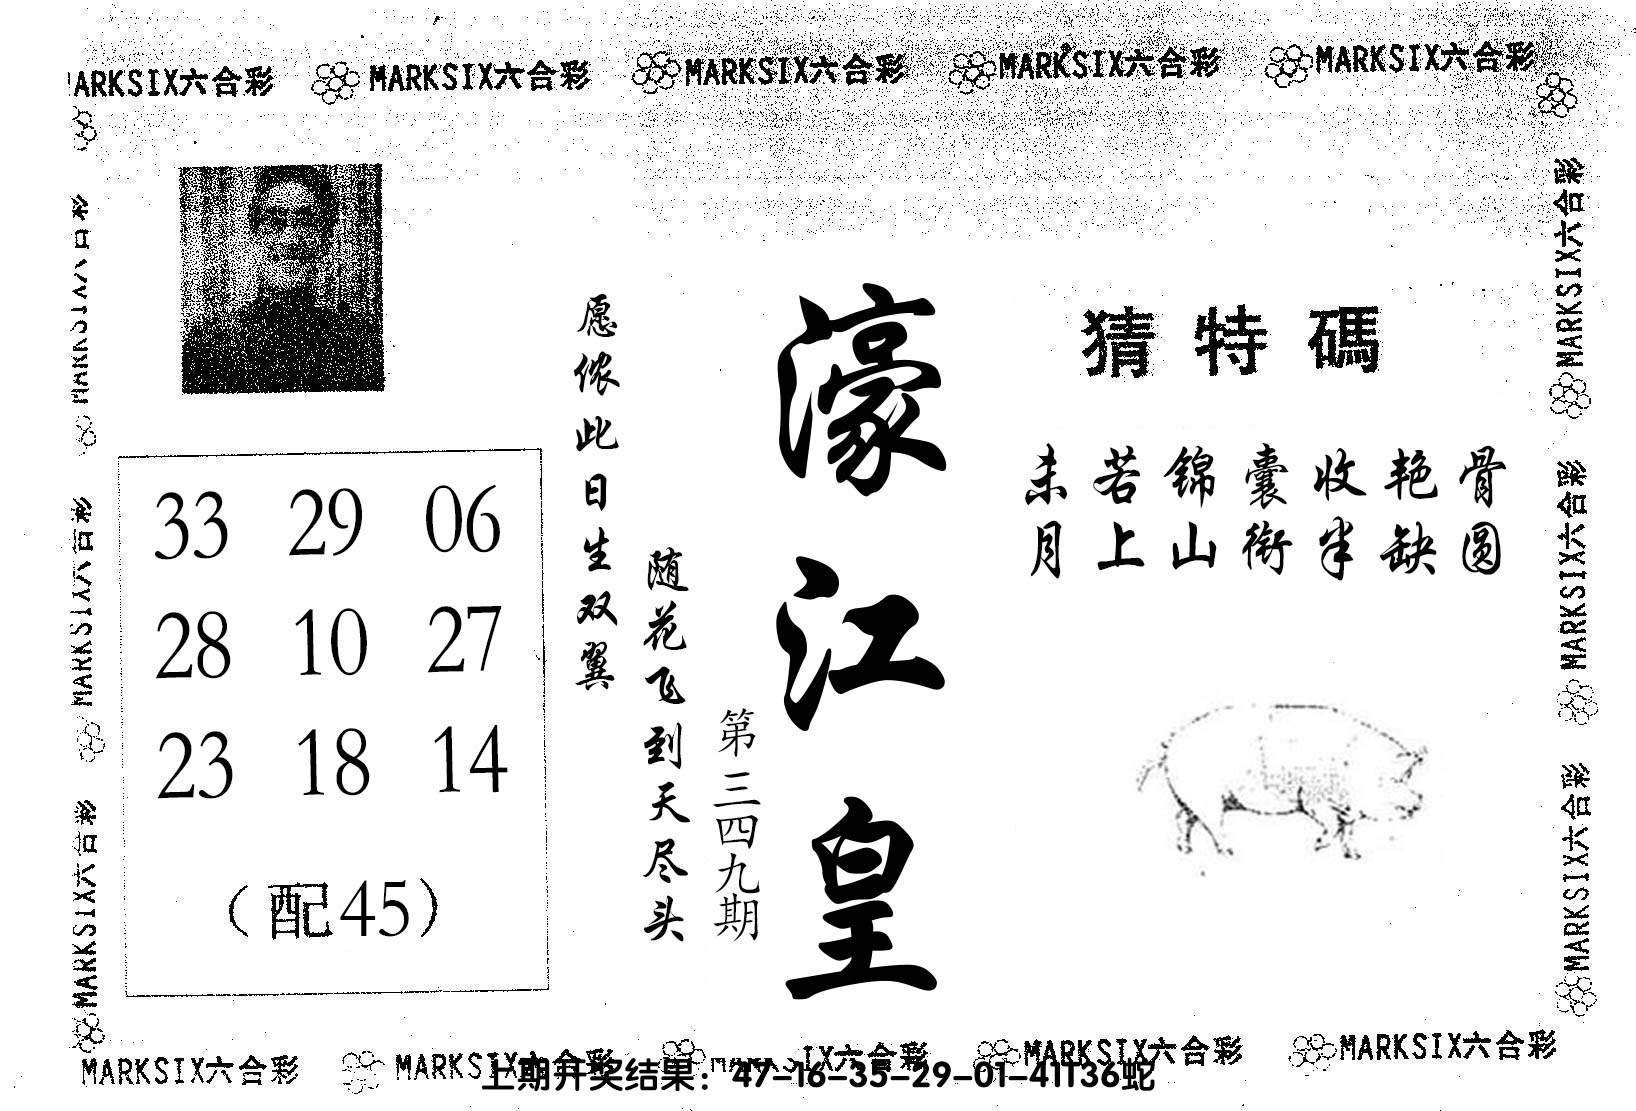 MARKSIX六合彩 MARKSIX六合彩 MARKSIX六合彩 MARKSIX六合彩 MARKSIX六合彩
猜特碼
未若锦囊收艳骨
月上山衔半缺圆
濠江皇
第三四九期
愿侬此日生双翼
随花飞到天尽头
33 29 06
28 10 27
23 18 14
（配45）
MARKSIX六合彩
MARKSIX六合彩
MARKSIX六合彩
MARKSIX六合彩
MARKSIX六合彩
MARKSIX六合彩
MARKSIX六合彩 MARKSIX六合彩 IX六合彩 MARKSIX六合彩 MARKSIX六合彩
上期开奖结果：47-16-35-29-01-41T36蛇